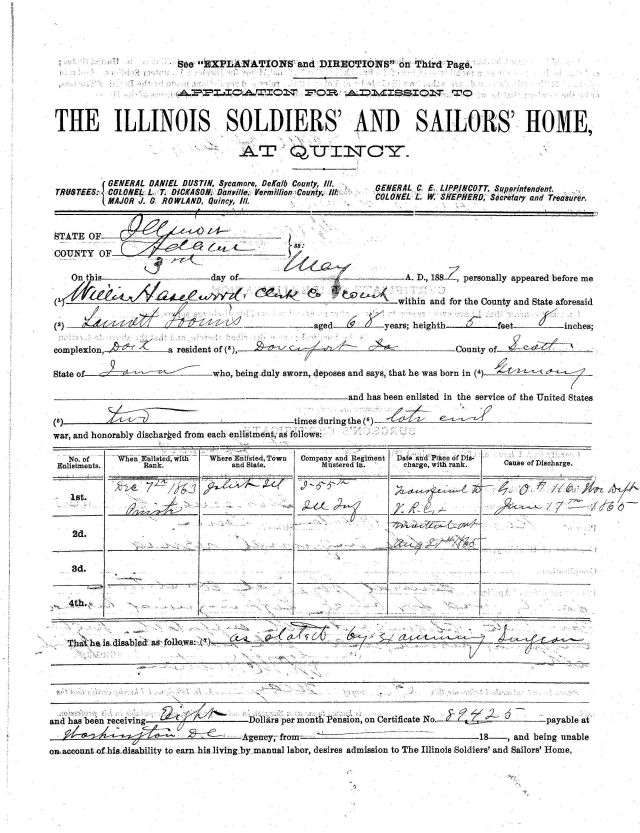 See "EXPLANATIONS and DIRECTIONS" on Third Page.
APPLICATION FOR ADMISSION TO
THE ILLINOIS SOLDIERS' AND SAILORS' HOME,
AT QUINCY.
TRUSTEES: GENERAL DANIEL DUSTIN, Sycamore, DeKalb County, Ill.
COLONEL L. T. DICKASON, Danville, Vermillion County, Ill.
MAJOR J. G. ROWLAND, Quincy, Ill.
GENERAL C. E. LIPPINCOTT, Superintendent.
COLONEL L. W. SHEPHERD, Secretary and Treasurer.
STATE OF Illinois
COUNTY OF Adams ss:
On this 3rd day of May A. D., 1887, personally appeared before me
(1) Willis Haselwood, Clerk Co Court within and for the County and State aforesaid
(2) Loomis aged 68 years; heighth 5 feet 8 inches;
complexion, a resident of (3), Davenport Ia County of Scott
State of Iowa who, being duly sworn, deposes and says, that he was born in (4) Germany
and has been enlisted in the service of the United States
(5) two times during the (6) late civil
war, and honorably discharged from each enlistment, as follows:
No. of Enlistments. When Enlisted, with Rank. Where Enlisted, Town and State. Company and Regiment Mustered in. Date and Place of Discharge, with rank. Cause of Discharge.
1st. Dec 7th 1863 Private Joliet Ill I-55th Ill Inf Transferred to V.R.C. mustered out Aug 21st 1865 G.O. # 116 War Dept June 17th 1865
2d.
3d.
4th.
That he is disabled as follows: (7) as stated by examining Surgeon
and has been receiving Eight Dollars per month Pension, on Certificate No. 89425 payable at
Washington D.C. Agency, from 18 , and being unable
on account of his disability to earn his living by manual labor, desires admission to The Illinois Soldiers' and Sailors' Home,